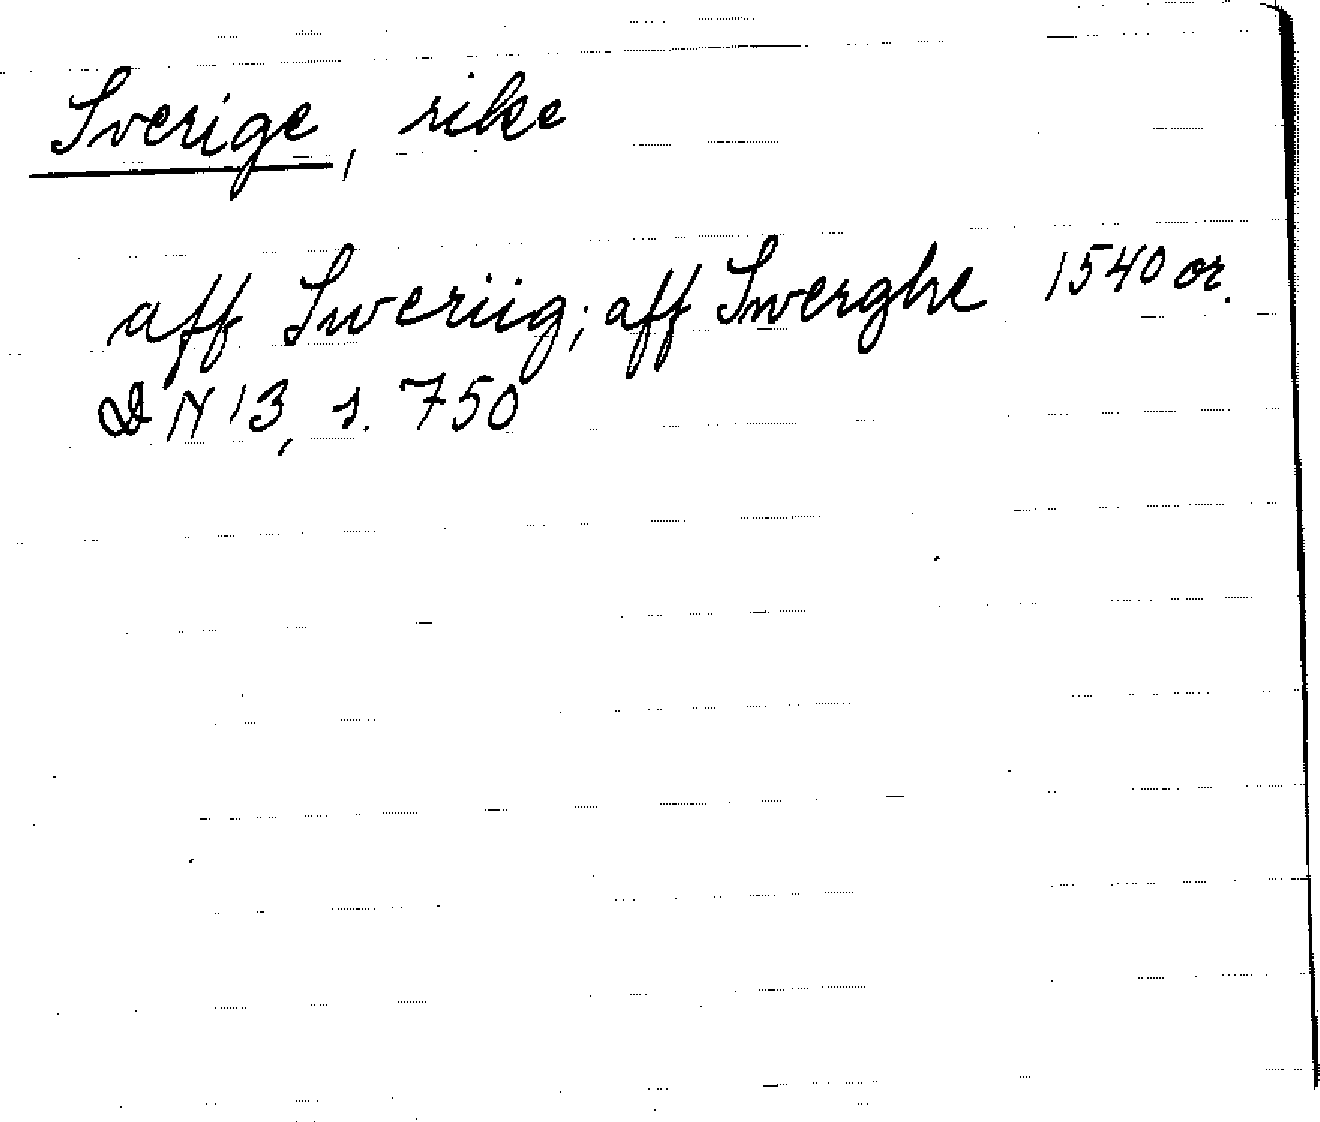 Sverige, rike
aff Sweriig; aff Swerghe 1540 or.
DN 13, s. 750